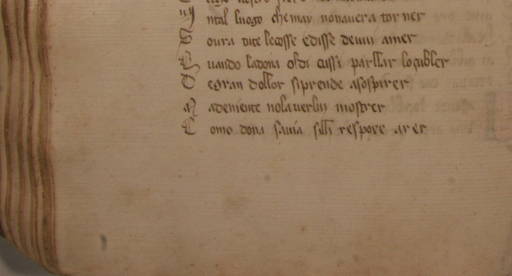 ntal luogo che may nonavera tor ner
S oura dite lecosse edisse devui amer
Q uando ladona oldi cussi parllar loçubler
D egran dollor siprende asospirer
M adeniente nola verlui mostrer
C omo dona savia silli respoxe arer